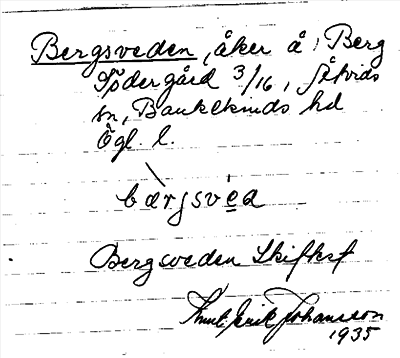 Bergsveden, åker å Berg
Södergård 3/16, Åtvids
sn, Bankekinds hd
Ögl. l.
bàrjsvéa
Bergsveden Skifteskt
Knut Erik Johansson
1935